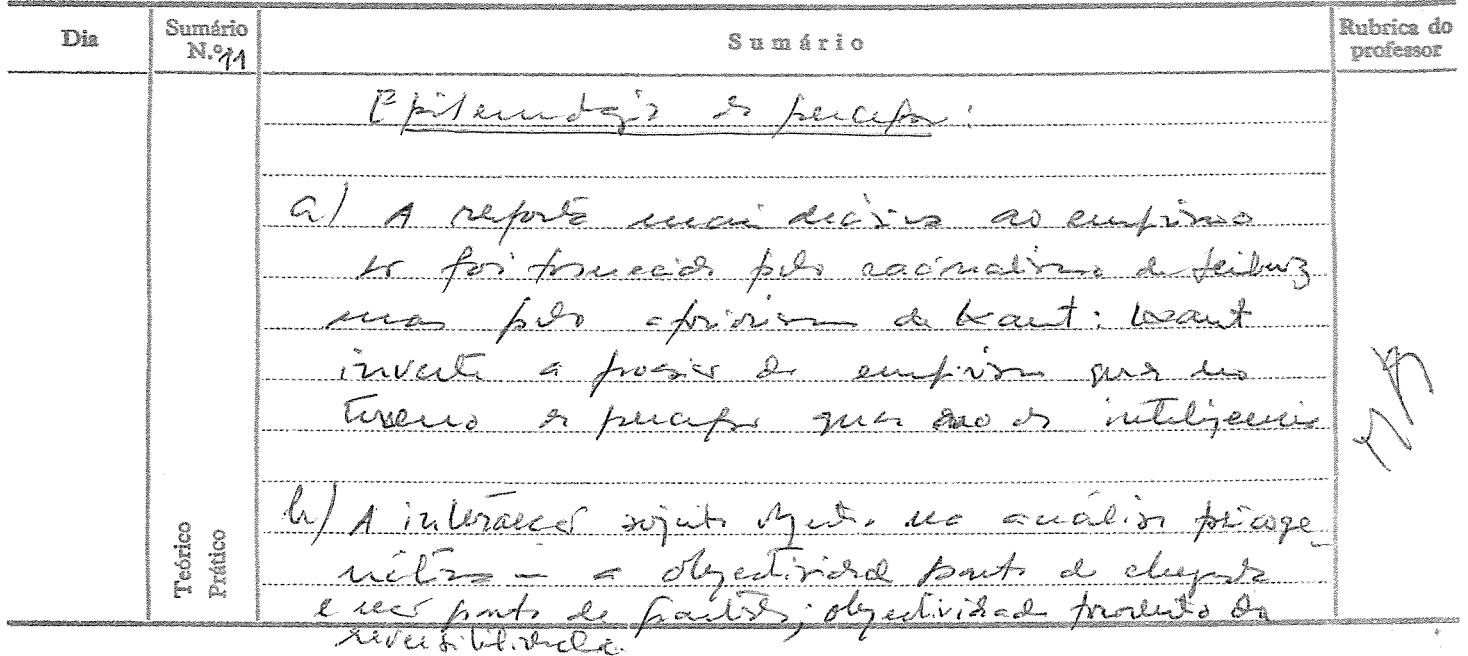 Dia
Sumário
N.º 11
Sumário
Rubrica do
professor
Epistemologia da percepção:
a) A resposta mais decisiva ao empirismo
foi fornecida pelo racionalismo de Leibniz
mas pelo apriorismo de Kant: Kant
inverte a posição do empirismo quer no
terreno da percepção quer no da inteligência
b) A interacção sujeito objecto na análise psicoge-
nética - a objectividade ponto de chegada
e não ponto de partida; objectividade produto da
reversibilidade.
Teórico
Prático